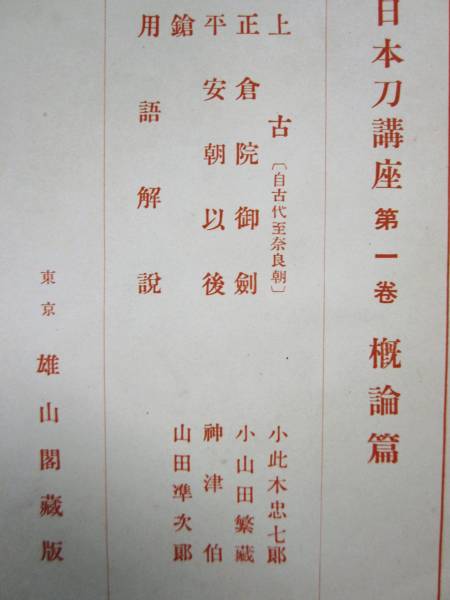 日本刀講座 第一卷 概論篇
上古〔自古代至奈良朝〕 小此木忠七郎
正倉院御劍 小山田繁藏
平安朝以後 神津伯
鎗 山田準次郎
用語解說
東京 雄山閣藏版